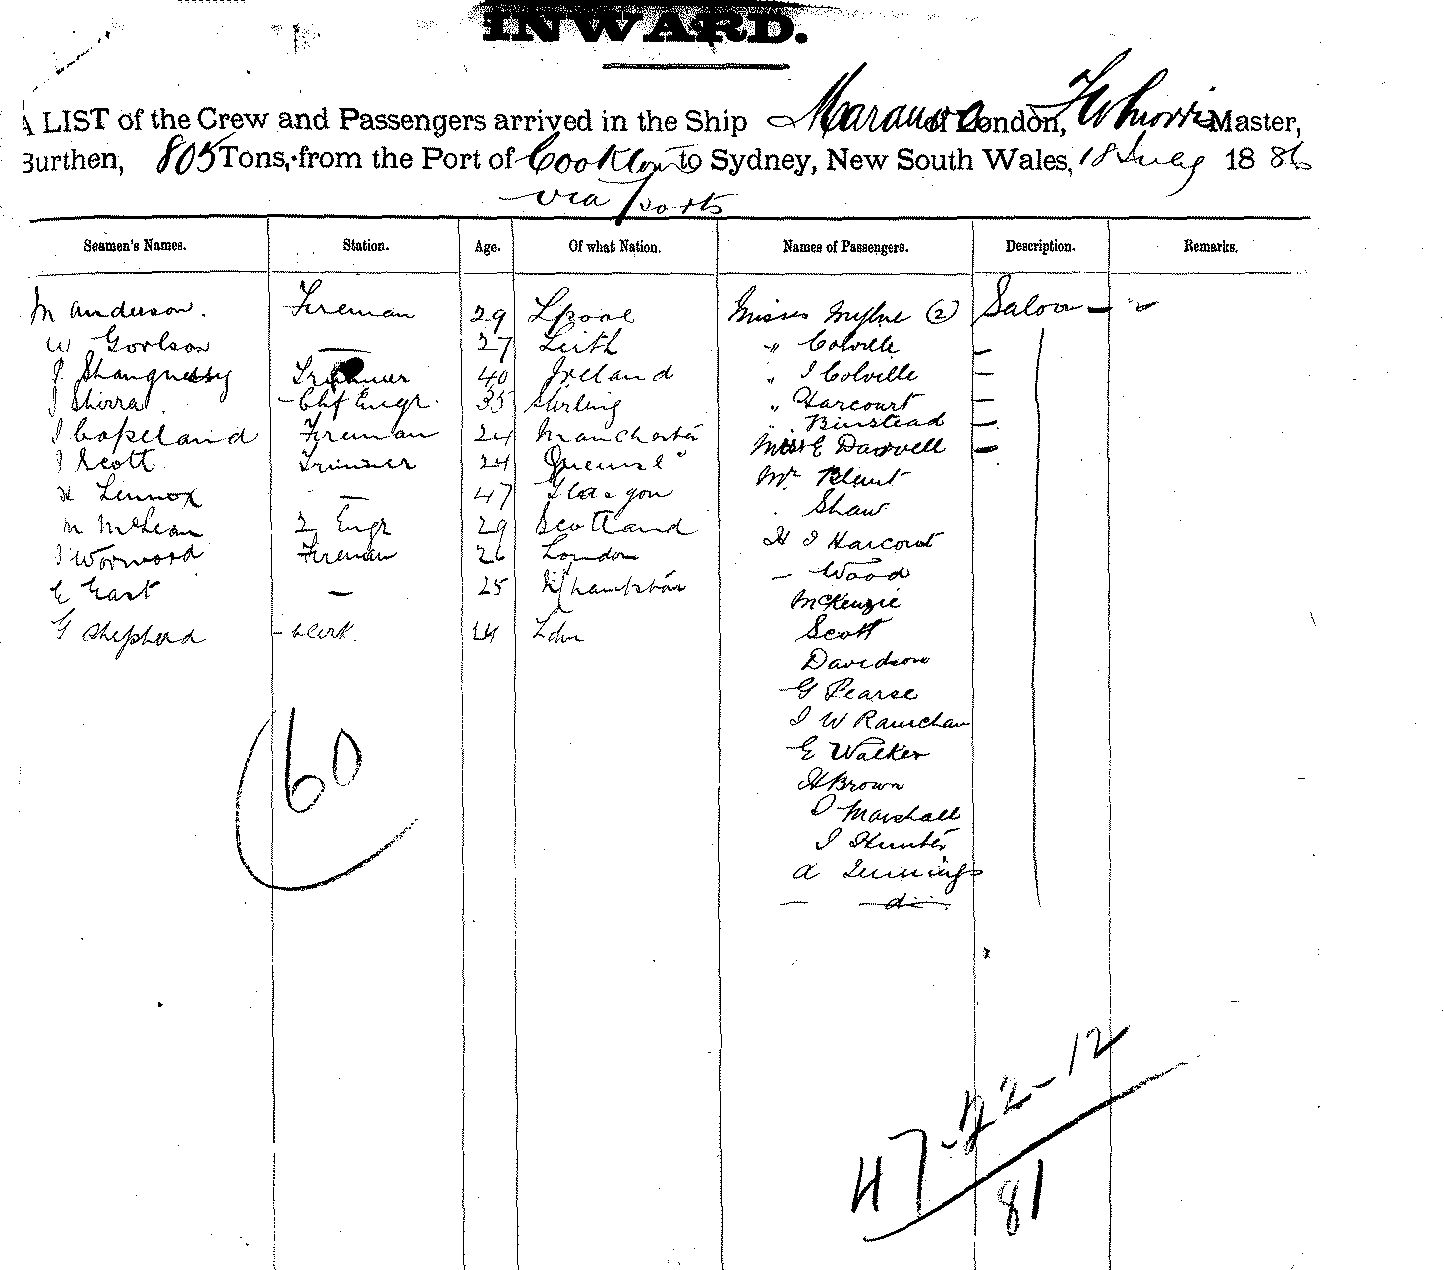 INWARD.
A LIST of the Crew and Passengers arrived in the Ship Maranoa of London, Morris Master,
Burthen, 805 Tons, from the Port of Cooktown to Sydney, New South Wales, 18 July 1886
via Ports
Seamen's Names. Station. Age. Of what Nation. Names of Passengers. Description. Remarks.
M Anderson. Fireman 29 Lpool Misses (2) Saloon
W — 27 Leith " Colville —
Shaugnessy Trimmer 40 Ireland " J Colville —
J Shirra Chf Engr. 35 Stirling " Harcourt —
" Binstead —
J Copeland Fireman 24 Manchester
Miss E Darvell —
J Scott Trimmer 24 Queensld
Mr Blunt
H Lennox — 47 Glasgow Shaw
M McLean 2 Engr 29 Scotland H J Harcourt
J Worwood Fireman 26 London — Wood
E East — 25 N'hampton McKenzie
G Shepherd - Clerk. 24 Ldn Scott
Davidson
G Pearse
J W
E Walker
60
H Brown
J Marshall
J Hunter
A Jennings
— do
47-22-12
81